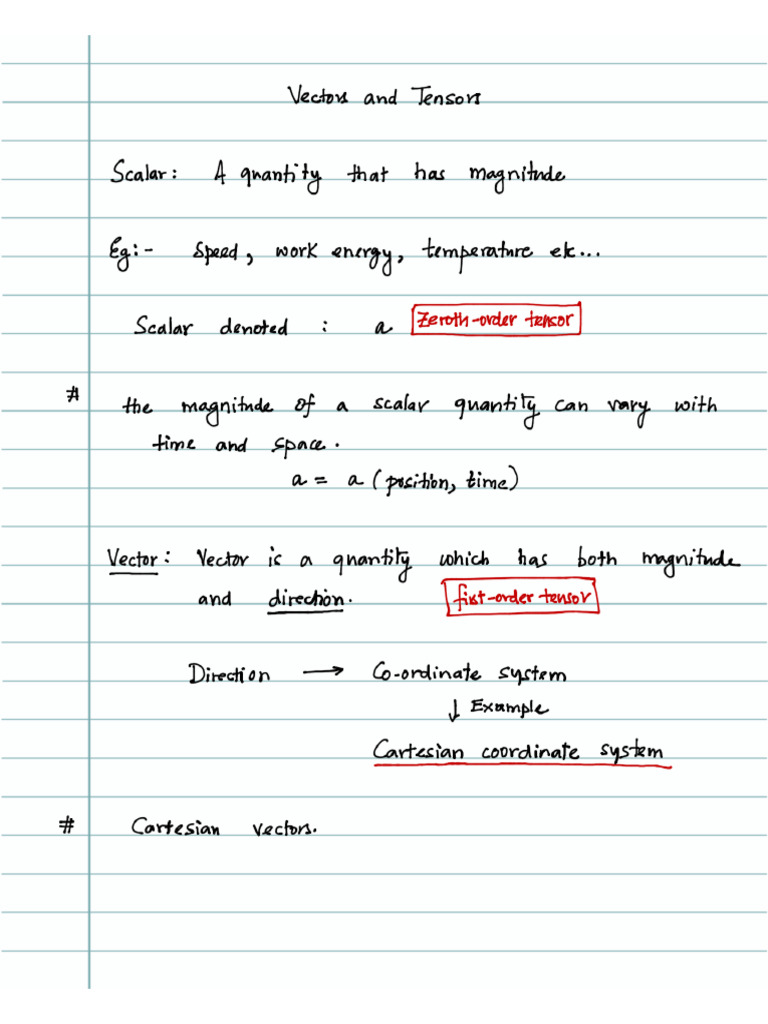 Vectors and Tensors
Scalar: A quantity that has magnitude
Eg:- Speed, work energy, temperature etc...
Scalar denoted : a Zeroth-order tensor
# the magnitude of a scalar quantity can vary with
time and space.
a = a (position, time)
Vector: Vector is a quantity which has both magnitude
and direction. first-order tensor
Direction → Co-ordinate system
↓ Example
Cartesian coordinate system
# Cartesian vectors.